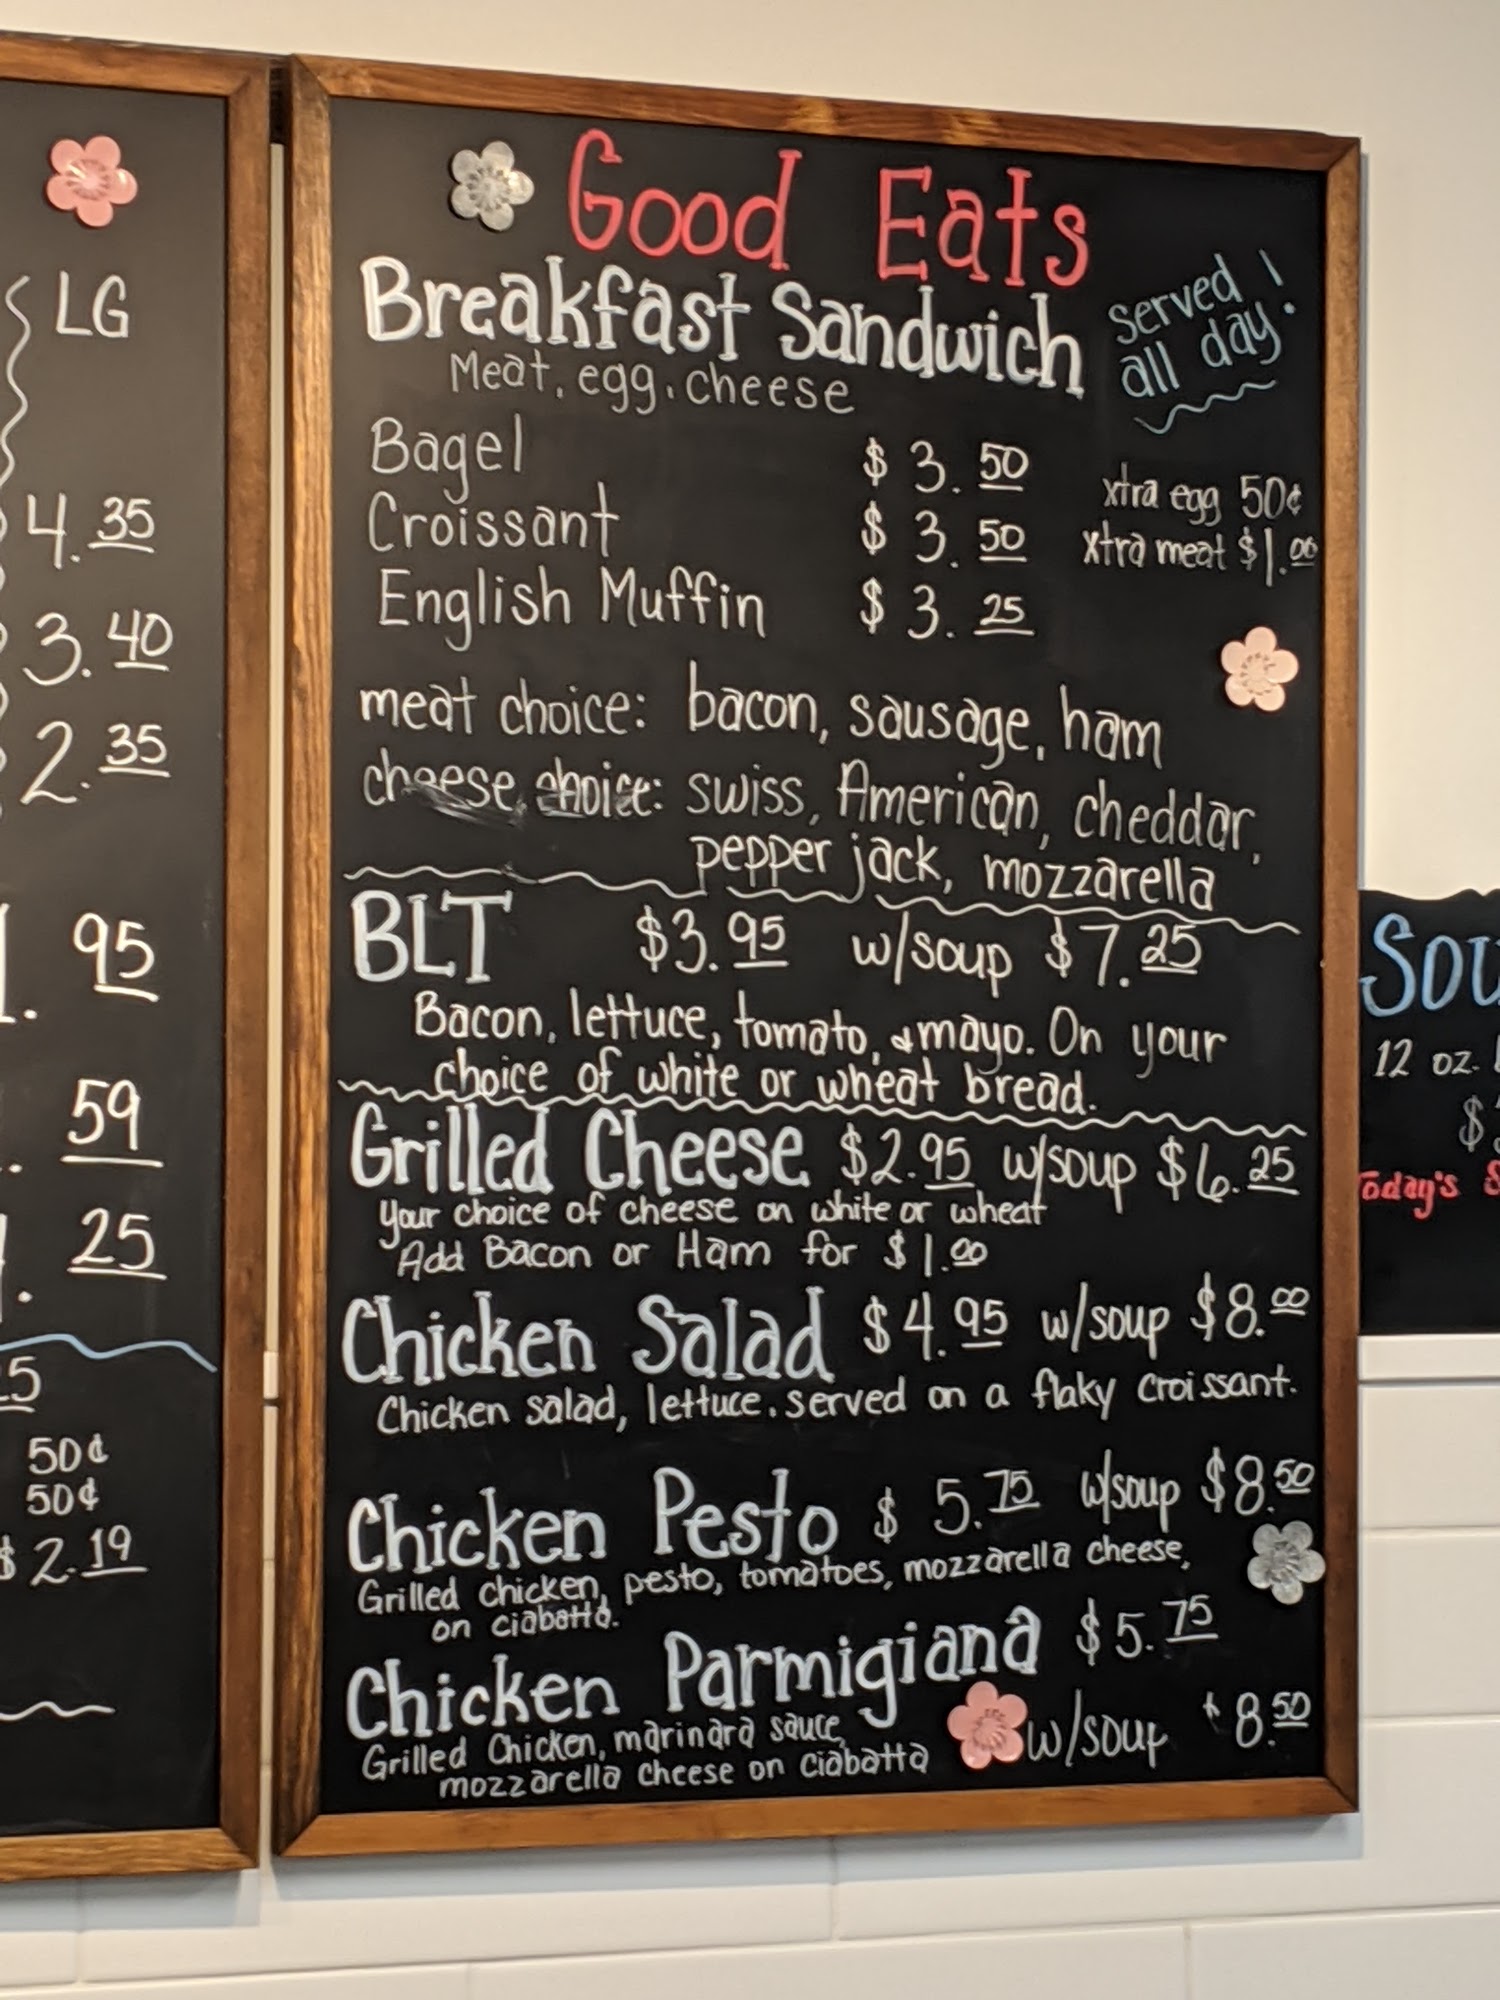 LG
4.35
3.40
2.35
95
59
25
50¢
50¢
$2.19
Good Eats
Breakfast Sandwich
Served
all day!
Meat, egg, cheese
Bagel $3.50
Croissant $3.50
English Muffin $3.25
xtra egg 50¢
xtra meat $1.00
meat choice: bacon, sausage, ham
cheese choice: swiss, American, cheddar,
pepper jack, mozzarella
BLT $3.95 w/soup $7.25
Bacon, lettuce, tomato, & mayo. On your
choice of white or wheat bread.
Grilled Cheese $2.95 w/soup $6.25
your choice of cheese on white or wheat
Add Bacon or Ham for $1.00
Chicken Salad $4.95 w/soup $8.00
Chicken salad, lettuce. served on a flaky croissant.
Chicken Pesto $5.75 w/soup $8.50
Grilled chicken, pesto, tomatoes, mozzarella cheese,
on ciabatta.
Chicken Parmigiana $5.75
w/soup $8.50
Grilled Chicken, marinara sauce,
mozzarella cheese on ciabatta
12 oz.
$
Today's